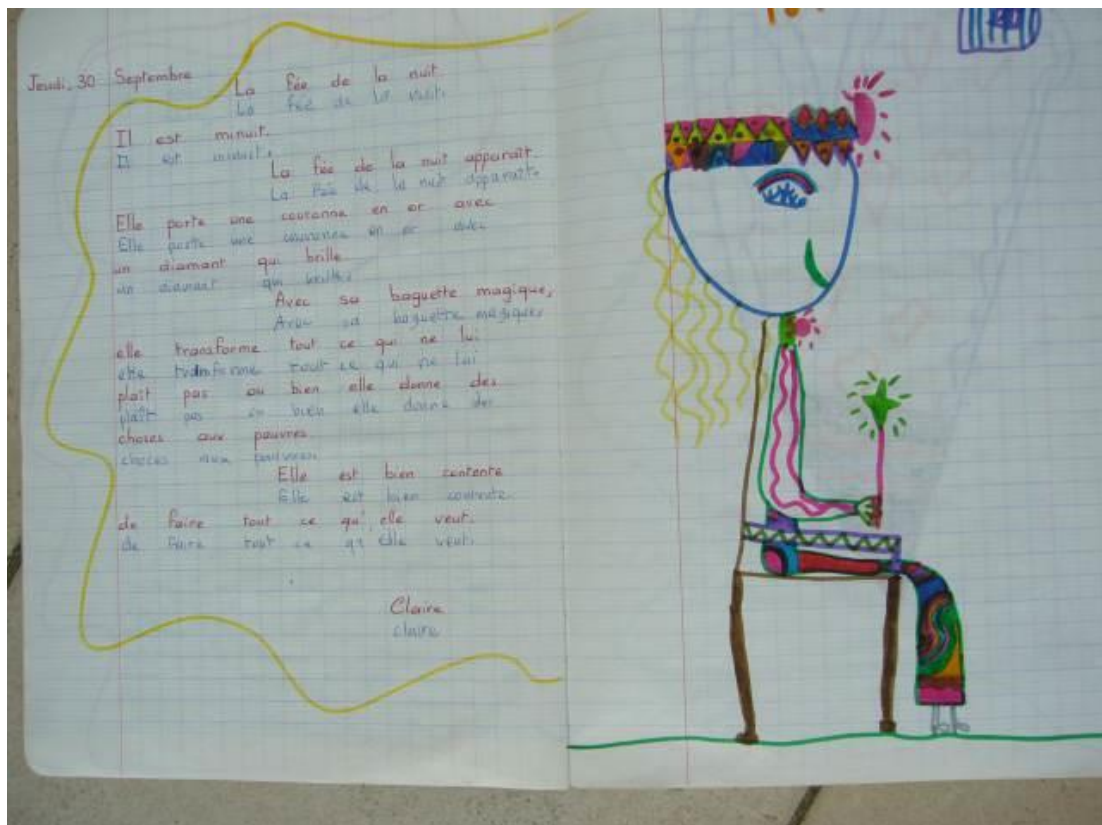 Jeudi, 30 Septembre
La fée de la nuit
La fée de la nuit.
Il est minuit.
Il est minuit.
La fée de la nuit apparaît.
La fée de la nuit apparaît.
Elle porte une couronne en or avec
Elle porte une couronne en or avec
un diamant qui brille.
un diamant qui brille.
Avec sa baguette magique,
Avec sa baguette magique,
elle transforme tout ce qui ne lui
elle transforme tout ce qui ne lui
plaît pas ou bien elle donne des
plaît pas ou bien elle donne des
choses aux pauvres.
choces aux pauvres.
Elle est bien contente
Elle est bien contente
de faire tout ce qu'elle veut.
de faire tout ce qu'elle veut.
Claire
claire